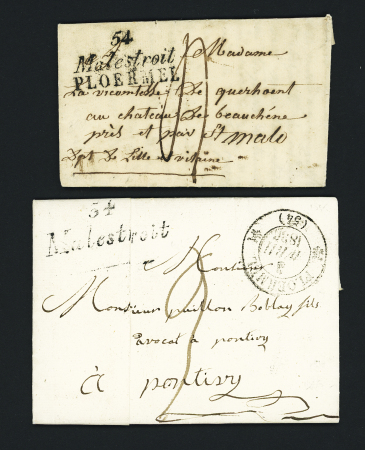 54
Malestroit
PLOERMEL
Madame
La vicomtesse De querhoent
au chateau De beauchéne
près et par St malo
Dpt De Lille et vilaine
54
Malestroit
PLOERMEL
(54)
Monsieur
Monsieur
fils
avocat à pontivy
à pontivy